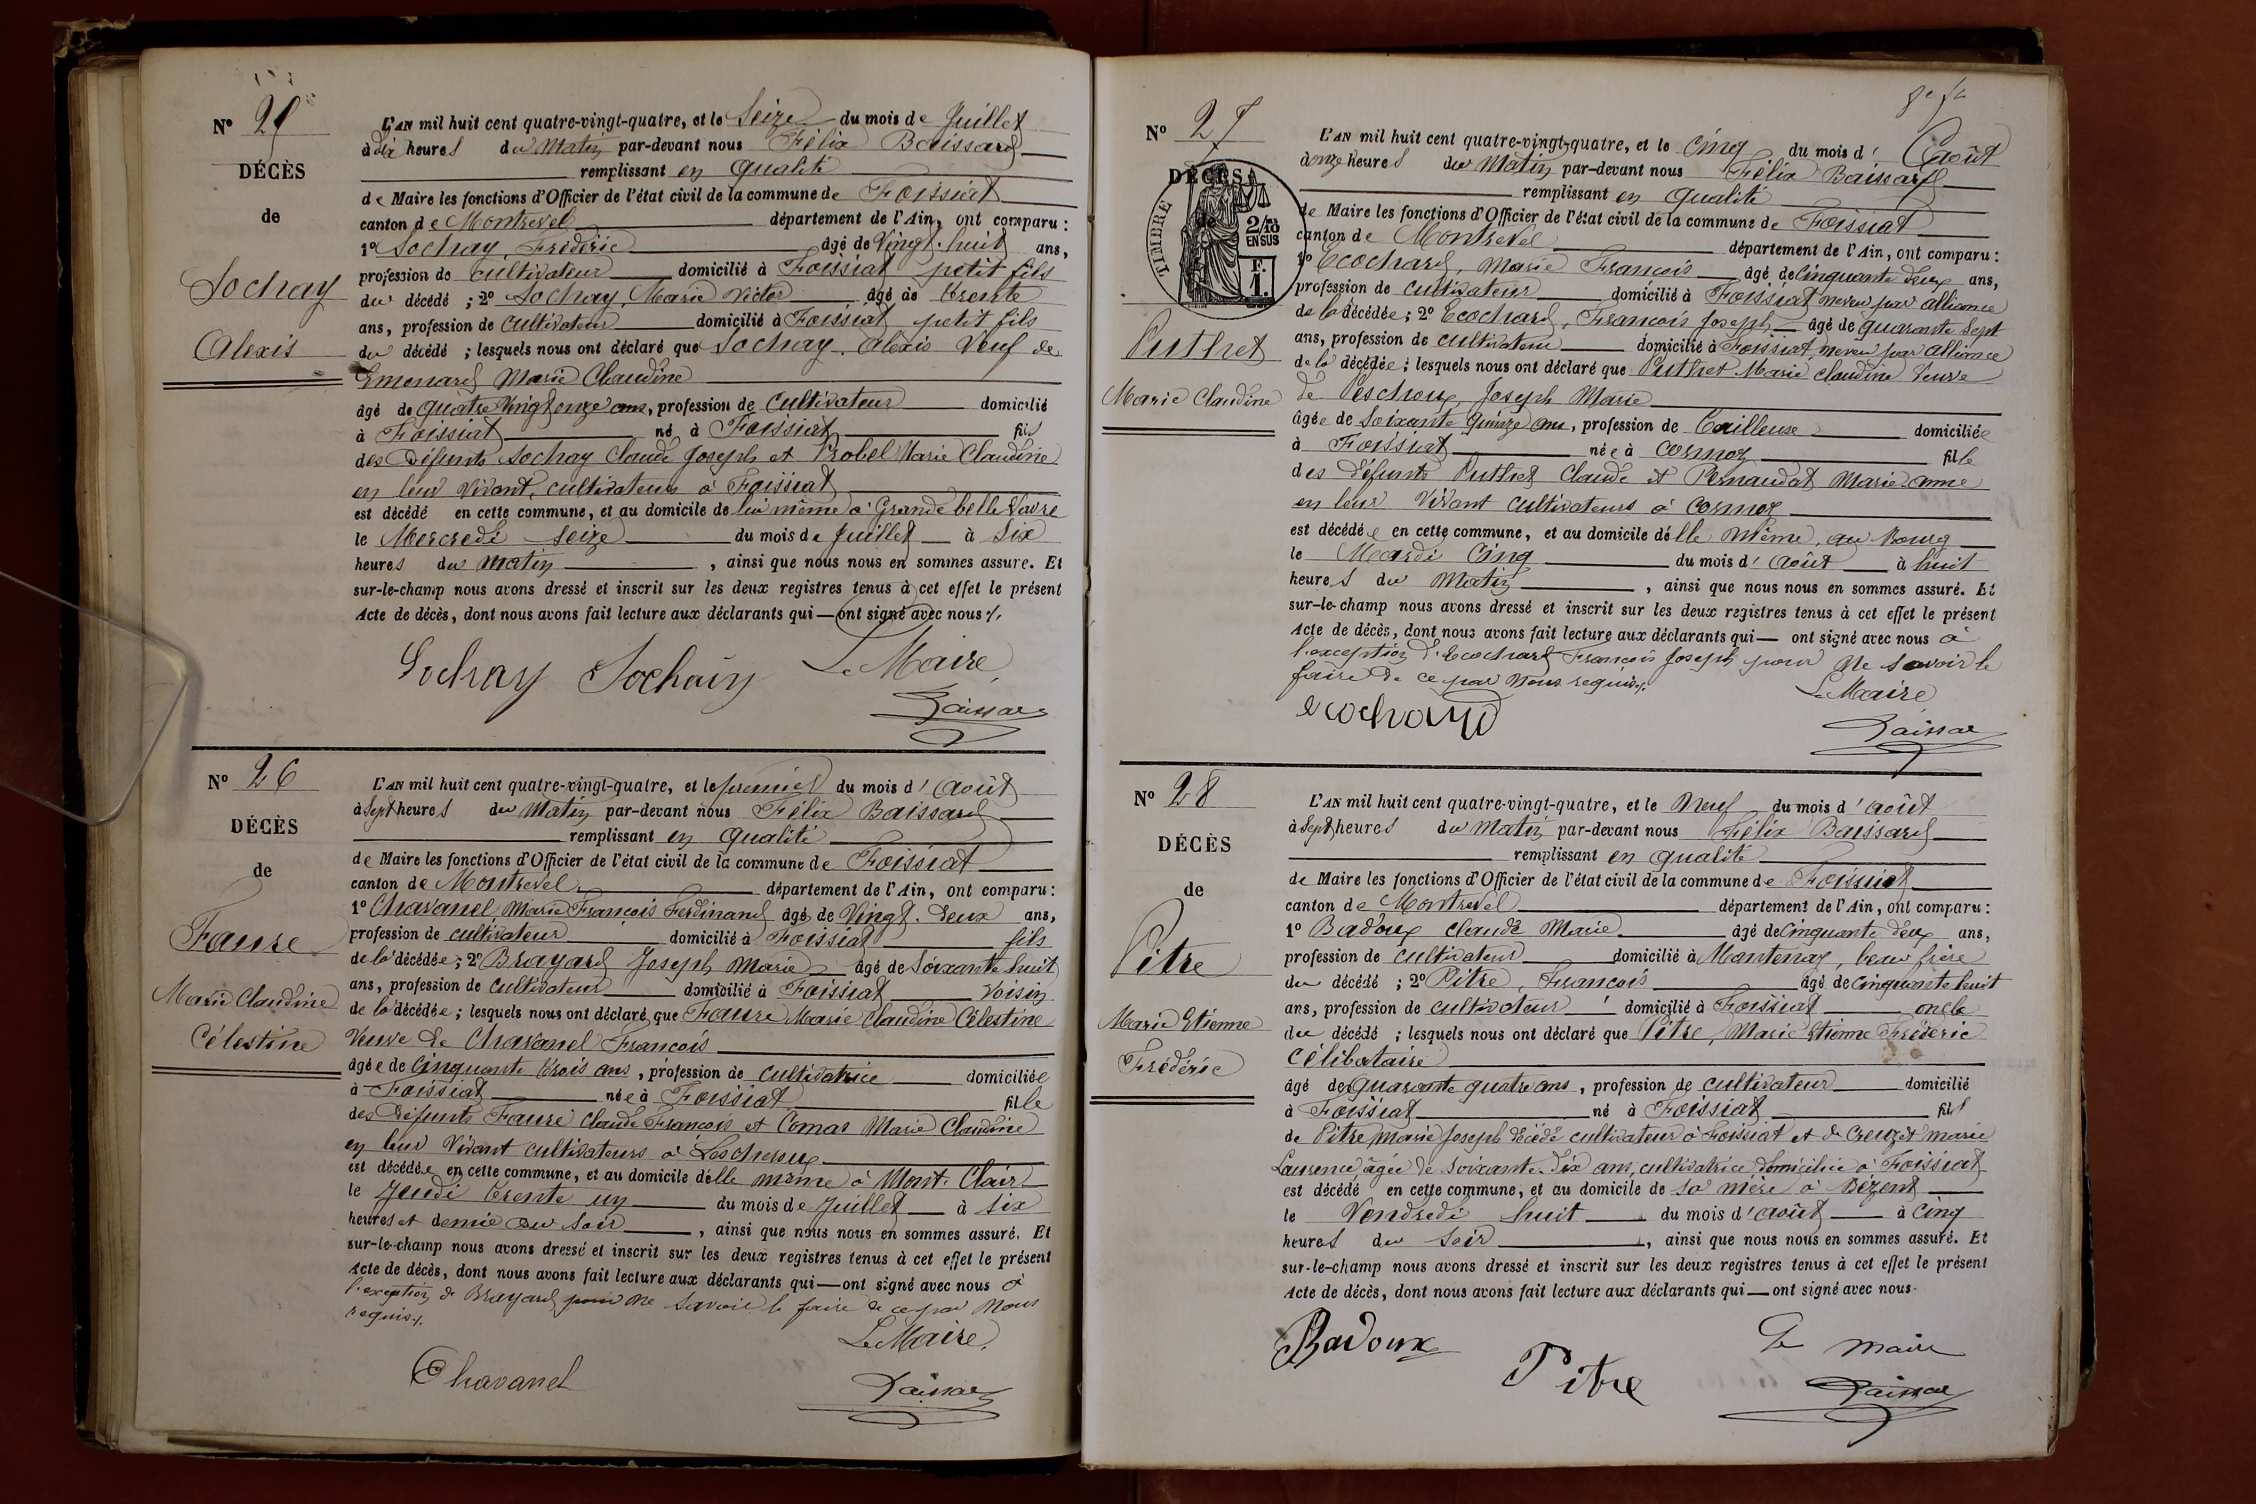 Nº 25
DÉCÈS
de
Sochay
Alexis
L'AN mil huit cent quatre-vingt-quatre, et le Seize du mois de Juillet
à dix heures du Matin par-devant nous Félix Baissard
remplissant en qualité
de Maire les fonctions d'Officier de l'état civil de la commune de Foissiat
canton de Montrevel département de l'Ain, ont comparu :
1º Sochay, Frédéric âgé de Vingt-huit ans,
profession de cultivateur domicilié à Foissiat petit fils
du décédé ; 2º Sochay, Marie Victor âgé de trente
ans, profession de cultivateur domicilié à Foissiat petit fils
du décédé ; lesquels nous ont déclaré que Sochay, Alexis Veuf de
Emonard Marie Claudine
âgé de quatre Vingt onze ans, profession de Cultivateur domicilié
à Foissiat né à Foissiat fils
des Défunts Sochay Claude Joseph et Probel Marie Claudine
en leur vivant, cultivateurs à Foissiat
est décédé en cette commune, et au domicile de lui même à Grande belle Vavre
le Mercredi Seize du mois de Juillet à Six
heures du matin , ainsi que nous nous en sommes assuré. Et
sur-le-champ nous avons dressé et inscrit sur les deux registres tenus à cet effet le présent
Acte de décès, dont nous avons fait lecture aux déclarants qui — ont signé avec nous ./.
Sochay Sochay Le Maire
Baissard
Nº 26
DÉCÈS
de
Faure
Marie Claudine
Célestine
L'AN mil huit cent quatre-vingt-quatre, et le premier du mois d'Août
à Sept heures du Matin par-devant nous Félix Baissard
remplissant en qualité
de Maire les fonctions d'Officier de l'état civil de la commune de Foissiat
canton de Montrevel département de l'Ain, ont comparu :
1º Chavanel, Marie François Ferdinand âgé de Vingt-deux ans,
profession de cultivateur domicilié à Foissiat fils
de la décédée ; 2º Brayard Joseph Marie âgé de Soixante huit
ans, profession de Cultivateur domicilié à Foissiat Voisin
de la décédée ; lesquels nous ont déclaré que Faure Marie Claudine Célestine
Veuve de Chavanel François
âgée de Cinquante trois ans, profession de cultivatrice domiciliée
à Foissiat née à Foissiat fille
des Défunts Faure Claude François et Comas Marie Claudine
en leur Vivant cultivateurs à Lescheroux
est décédée en cette commune, et au domicile d'elle même à Mont-Clair
le Jeudi trente un du mois de Juillet à six
heures et demie du soir , ainsi que nous nous en sommes assuré. Et
sur-le-champ nous avons dressé et inscrit sur les deux registres tenus à cet effet le présent
Acte de décès, dont nous avons fait lecture aux déclarants qui — ont signé avec nous à
l'exception de Brayard pour ne savoir le faire de ce par nous
requis ./.
Le Maire
Chavanel Baissard
Nº 27
DÉCÈS
TIMBRE
2/10
EN SUS
F.
1.
Puthet
Marie Claudine
L'AN mil huit cent quatre-vingt-quatre, et le cinq du mois d'Août
à onze heures du Matin par-devant nous Félix Baissard
remplissant en qualité
de Maire les fonctions d'Officier de l'état civil de la commune de Foissiat
canton de Montrevel département de l'Ain, ont comparu :
1º Ecochard, Marie François âgé de cinquante deux ans,
profession de cultivateur domicilié à Foissiat neveu par alliance
de la décédée ; 2º Ecochard, François Joseph âgé de quarante sept
ans, profession de cultivateur domicilié à Foissiat, neveu par alliance
de la décédée ; lesquels nous ont déclaré que Puthet Marie Claudine Veuve
de Peschoux, Joseph Marie
âgée de Soixante Quinze ans, profession de Tailleuse domiciliée
à Foissiat née à Cormoz fille
des défunts Puthet Claude et Pernaudat Marie Anne
en leur Vivant cultivateurs à Cormoz
est décédée en cette commune, et au domicile d'elle même, au Bourg
le Mardi Cinq du mois d'Août à huit
heures du Matin , ainsi que nous nous en sommes assuré. Et
sur-le-champ nous avons dressé et inscrit sur les deux registres tenus à cet effet le présent
Acte de décès, dont nous avons fait lecture aux déclarants qui — ont signé avec nous à
l'exception d'Ecochard François Joseph pour ne savoir le
faire de ce par nous requis ./.
Le Maire
ecochard
Baissard
Nº 28
DÉCÈS
de
Pitre
Marie Etienne
Frédéric
L'AN mil huit cent quatre-vingt-quatre, et le Neuf du mois d'Août
à Sept heures du Matin par-devant nous Félix Baissard
remplissant en qualité
de Maire les fonctions d'Officier de l'état civil de la commune de Foissiat
canton de Montrevel département de l'Ain, ont comparu :
1º Badoux Claude Marie âgé de Cinquante deux ans,
profession de cultivateur domicilié à Mantenay, beau frère
du décédé ; 2º Pitre, François âgé de cinquante huit
ans, profession de cultivateur domicilié à Foissiat oncle
du décédé ; lesquels nous ont déclaré que Pitre, Marie Etienne Frédéric
célibataire
âgé de quarante quatre ans, profession de cultivateur domicilié
à Foissiat né à Foissiat fils
de Pitre Marie Joseph décédé cultivateur à Foissiat et de Creuzet Marie
Laurence âgée de soixante-dix ans, cultivatrice domiciliée à Foissiat
est décédé en cette commune, et au domicile de sa mère à Bézent
le Vendredi huit du mois d'Août à Cinq
heures du Soir , ainsi que nous nous en sommes assuré. Et
sur-le-champ nous avons dressé et inscrit sur les deux registres tenus à cet effet le présent
Acte de décès, dont nous avons fait lecture aux déclarants qui — ont signé avec nous.
Badoux Pitre Le Maire
Baissard